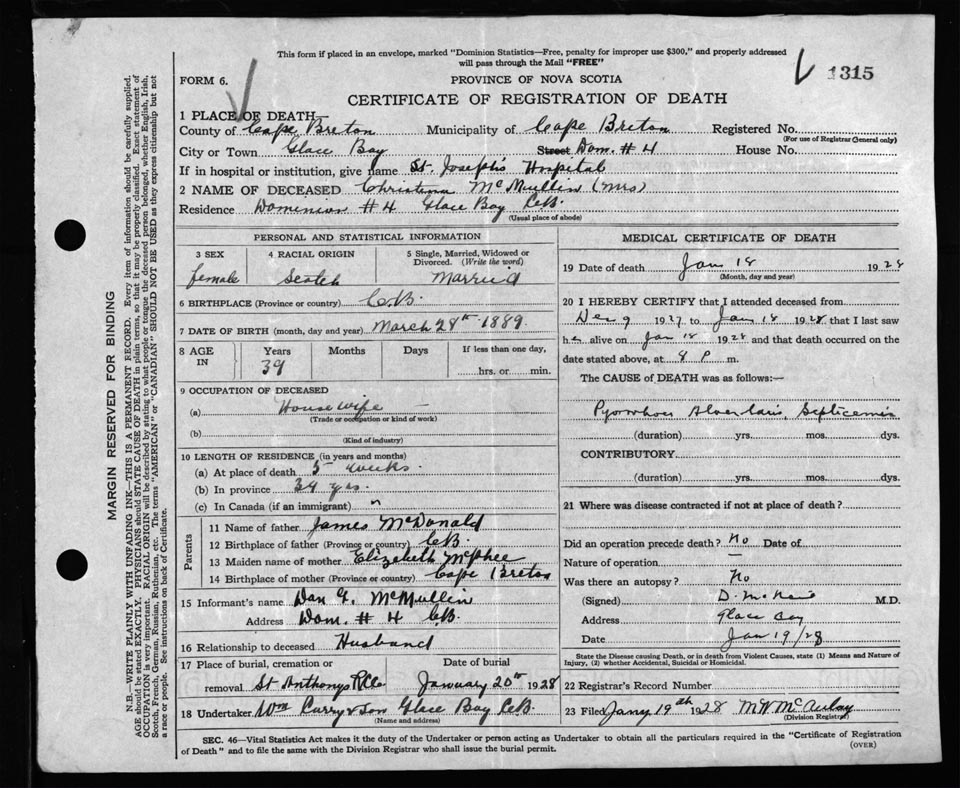 This form if placed in an envelope, marked "Dominion Statistics—Free, penalty for improper use $300," and properly addressed
will pass through the Mail "FREE"
1315
FORM 6.
PROVINCE OF NOVA SCOTIA
CERTIFICATE OF REGISTRATION OF DEATH
1 PLACE OF DEATH
County of Cape Breton Municipality of Cape Breton Registered No.
(For use of Registrar General only)
City or Town Glace Bay Street Dom. # 4 House No.
If in hospital or institution, give name St. Joseph's Hospital
2 NAME OF DECEASED Christina McMullin (Mrs)
Residence Dominion # 4 Glace Bay C.B.
(Usual place of abode)
PERSONAL AND STATISTICAL INFORMATION
3 SEX 4 RACIAL ORIGIN 5 Single, Married, Widowed or
Divorced. (Write the word)
female Scotch Married
6 BIRTHPLACE (Province or country) C.B.
7 DATE OF BIRTH (month, day and year) March 28th 1889
8 AGE IN Years Months Days If less than one day,
39 hrs. or min.
9 OCCUPATION OF DECEASED
(a) House wife
(Trade or occupation or kind of work)
(b)
(Kind of industry)
10 LENGTH OF RESIDENCE (in years and months)
(a) At place of death 5 weeks.
(b) In province 39 yrs.
(c) In Canada (if an immigrant)
Parents
11 Name of father James McDonald
12 Birthplace of father (Province or country) C.B.
13 Maiden name of mother Elizabeth McPhee
14 Birthplace of mother (Province or country) Cape Breton
15 Informant's name Dan McMullin
Address Dom. # 4 C.B.
16 Relationship to deceased Husband
17 Place of burial, cremation or Date of burial
removal St Anthonys January 20th 1928
18 Undertaker Wm Curry & Son Glace Bay C.B.
(Name and address)
MEDICAL CERTIFICATE OF DEATH
19 Date of death Jan 18 1928
(Month, day and year)
20 I HEREBY CERTIFY that I attended deceased from
Dec 9 1927 to Jan 18 1928 that I last saw
her alive on Jan 18 1928 and that death occurred on the
date stated above, at P m.
The CAUSE of DEATH was as follows:—
Pyorrhoea Alveolaris, Septicemia
(duration) yrs. mos. dys.
CONTRIBUTORY
(duration) yrs. mos. dys.
21 Where was disease contracted if not at place of death?
Did an operation precede death? No Date of
Nature of operation —
Was there an autopsy? No
(Signed) M.D.
Address Glace Bay
Date Jan 19/28
State the Disease causing Death, or in death from Violent Causes, state (1) Means and Nature of
Injury, (2) whether Accidental, Suicidal or Homicidal.
22 Registrar's Record Number
23 Filed Jany 19th 1928 McAulay
(Division Registrar)
SEC. 46—Vital Statistics Act makes it the duty of the Undertaker or person acting as Undertaker to obtain all the particulars required in the "Certificate of Registration
of Death" and to file the same with the Division Registrar who shall issue the burial permit.
(OVER)
MARGIN RESERVED FOR BINDING
N.B.—WRITE PLAINLY WITH UNFADING INK—THIS IS A PERMANENT RECORD. Every item of information should be carefully supplied.
AGE should be stated EXACTLY. PHYSICIANS should STATE CAUSE OF DEATH in plain terms, so that it may be properly classified. Exact statement of
OCCUPATION is very important. RACIAL ORIGIN will be described by stating to what people or tongue the deceased person belonged, whether English, Irish,
Scotch, French, German, Russian, Ruthenian, etc. The terms "AMERICAN" or "CANADIAN" SHOULD NOT BE USED as they express citizenship but not
a race or people. See instructions on back of Certificate.